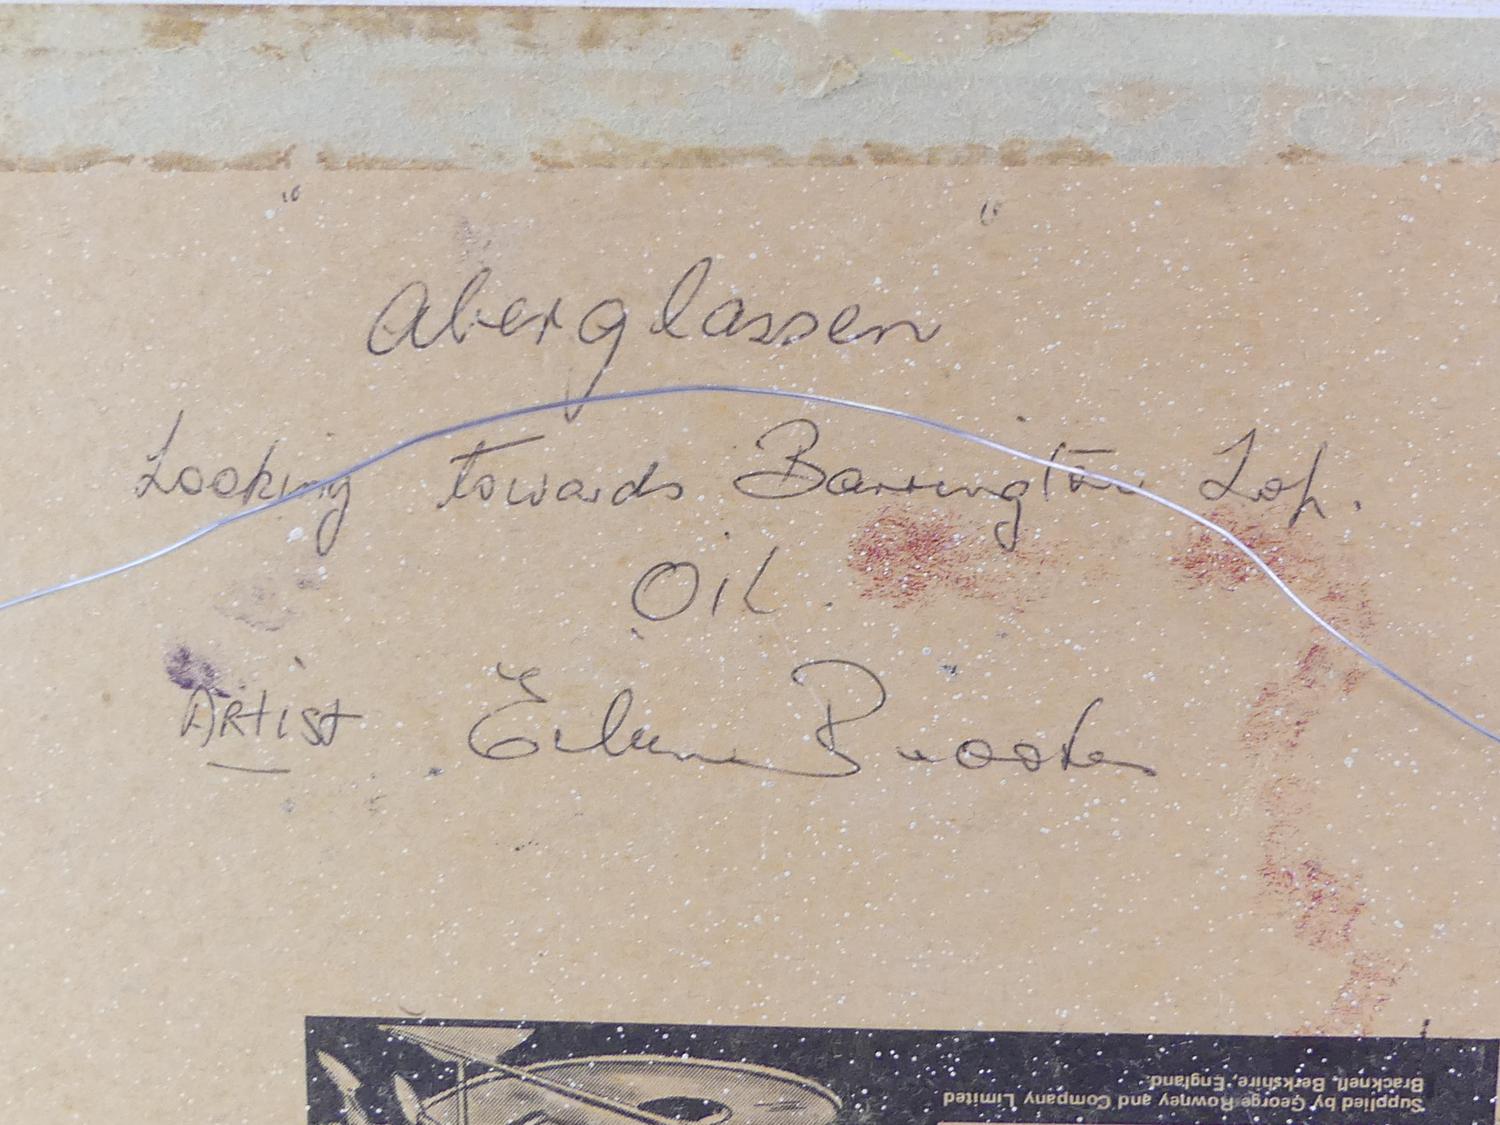 " "
Aberglassen
Looking towards Barrington Top.
Oil.
Artist Eileen Brooker
Supplied by George Rowney and Company Limited
Bracknell, Berkshire, England.